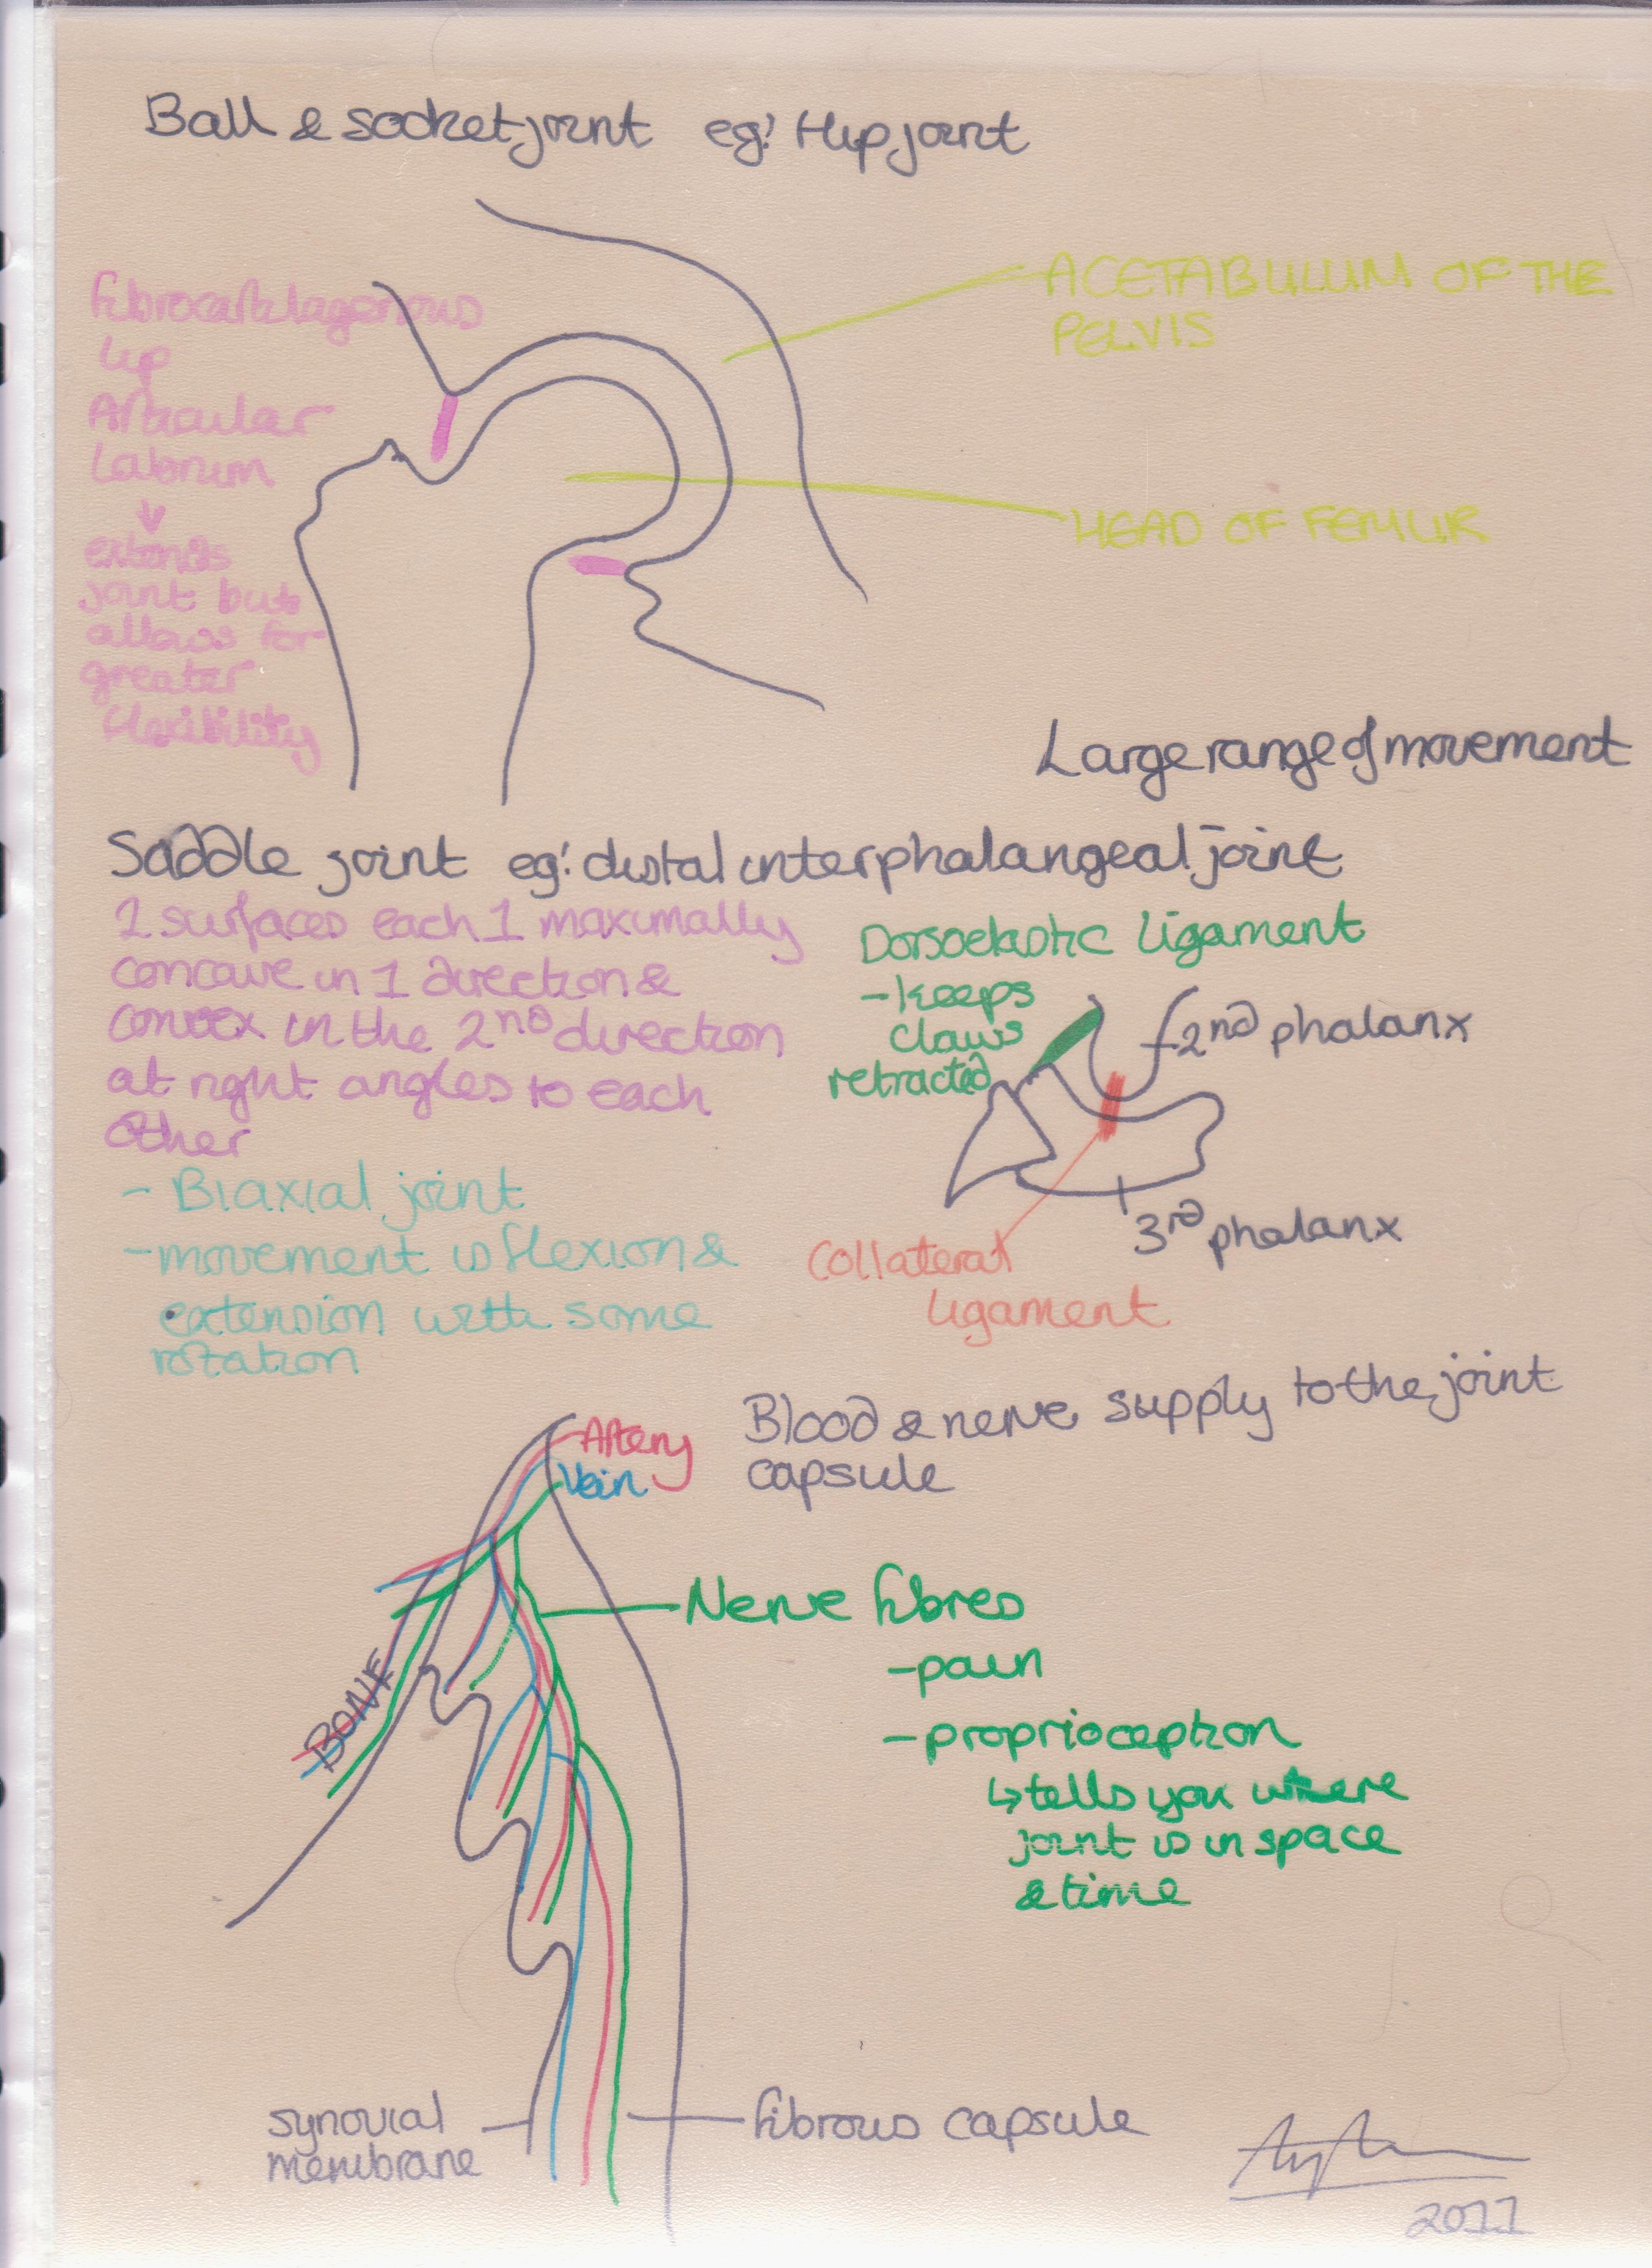 Ball & socket joint eg: Hip joint
ACETABULUM OF THE
PELVIS
fibrocartilagenous
lip
Articular
Labrum
↓
extends
joint but
allows for
greater
flexibility
HEAD OF FEMUR
Large range of movement
Saddle joint eg: distal interphalangeal joint
2 surfaces each 1 maximally
concave in 1 direction &
convex in the 2nd direction
at right angles to each
other
- Biaxial joint
- movement is flexion &
extension with some
rotation
Dorsoelastic ligament
- keeps
claws
retracted
2nd phalanx
3rd phalanx
Collateral
ligament
Blood & nerve supply to the joint
capsule
Artery
Vein
Nerve fibres
- pain
- proprioception
↳ tells you where
joint is in space
& time
BONE
synovial
membrane
fibrous capsule
2011